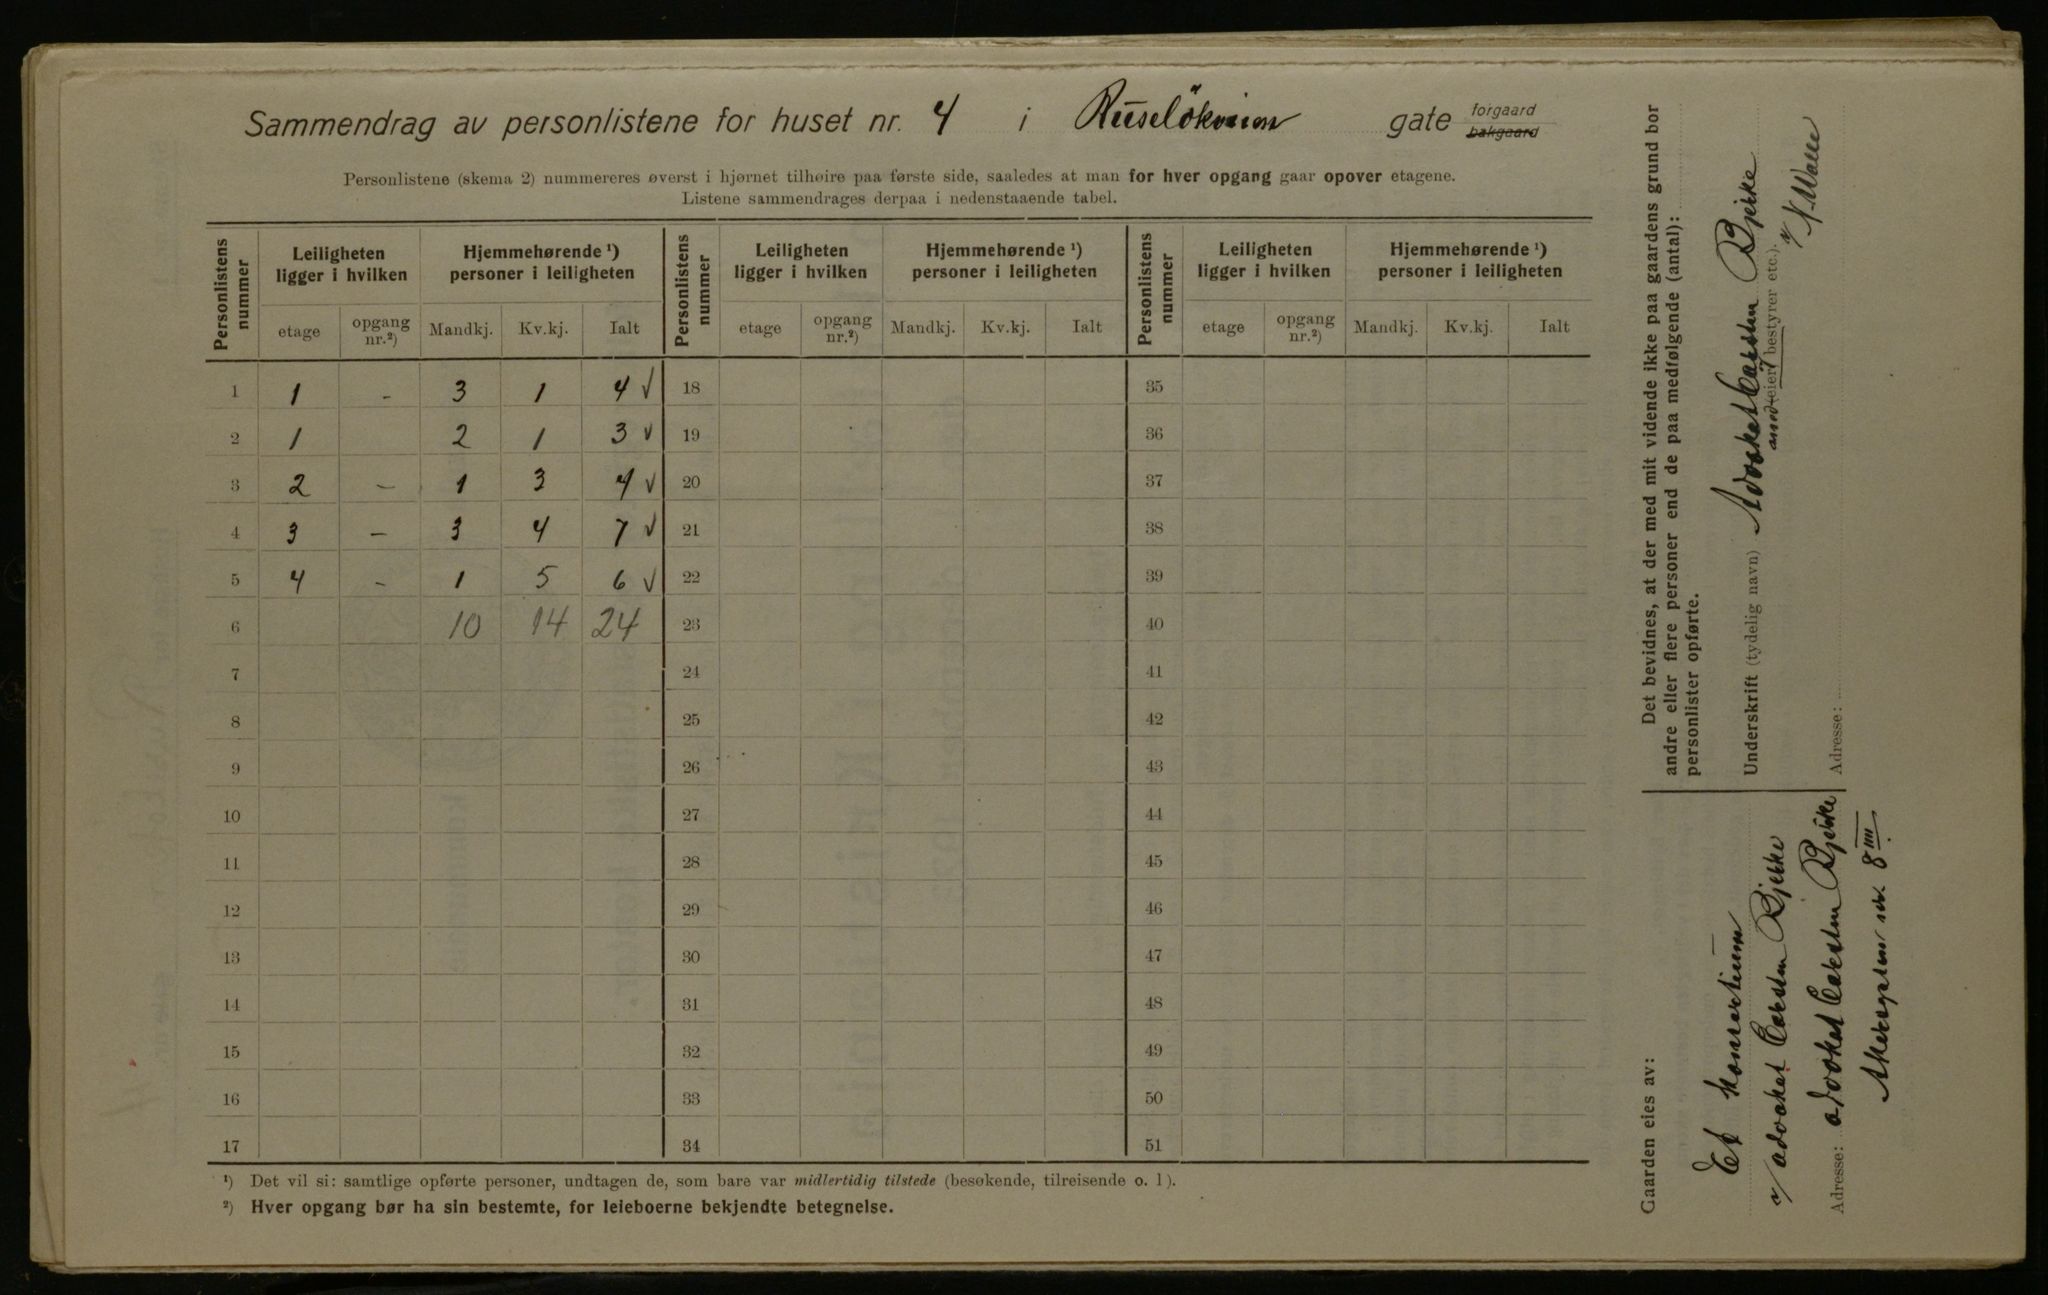 Sammendrag av personlistene for huset nr. 4 i Ruseløkveien gate forgaard
bakgaard
Personlistene (skema 2) nummereres øverst i hjørnet tilhøire paa første side, saaledes at man for hver opgang gaar opover etagene.
Listene sammendrages derpaa i nedenstaaende tabel.
Personlistens nummer Leiligheten ligger i hvilken Hjemmehørende ¹) personer i leiligheten Personlistens nummer Leiligheten ligger i hvilken Hjemmehørende ¹) personer i leiligheten Personlistens nummer Leiligheten ligger i hvilken Hjemmehørende ¹) personer i leiligheten
etage opgang nr.²) Mandkj. Kv.kj. Ialt etage opgang nr.²) Mandkj. Kv.kj. Ialt etage opgang nr.²) Mandkj. Kv.kj. Ialt
1 1 - 3 1 4 √ 18 35
2 1 2 1 3 √ 19 36
3 2 - 1 3 4 √ 20 37
4 3 - 3 4 7 √ 21 38
5 4 - 1 5 6 √ 22 39
6 10 14 24 23 40
7 24 41
8 25 42
9 26 43
10 27 44
11 28 45
12 29 46
13 30 47
14 31 48
15 32 49
16 33 50
17 34 51
¹) Det vil si: samtlige opførte personer, undtagen de, som bare var midlertidig tilstede (besøkende, tilreisende o. l).
²) Hver opgang bør ha sin bestemte, for leieboerne bekjendte betegnelse.
Det bevidnes, at der med mit vidende ikke paa gaardens grund bor
andre eller flere personer end de paa medfølgende (antal):
personlister opførte.
Underskrift (tydelig navn) Advokat Carsten Bjerke
(eier, bestyrer etc.). v/
Adresse:
Gaarden eies av:
Et Konsortium
v/ advokat Carsten Bjerke
Adresse: advokat Carsten Bjerke
Akersgaten nr. 8 IIII